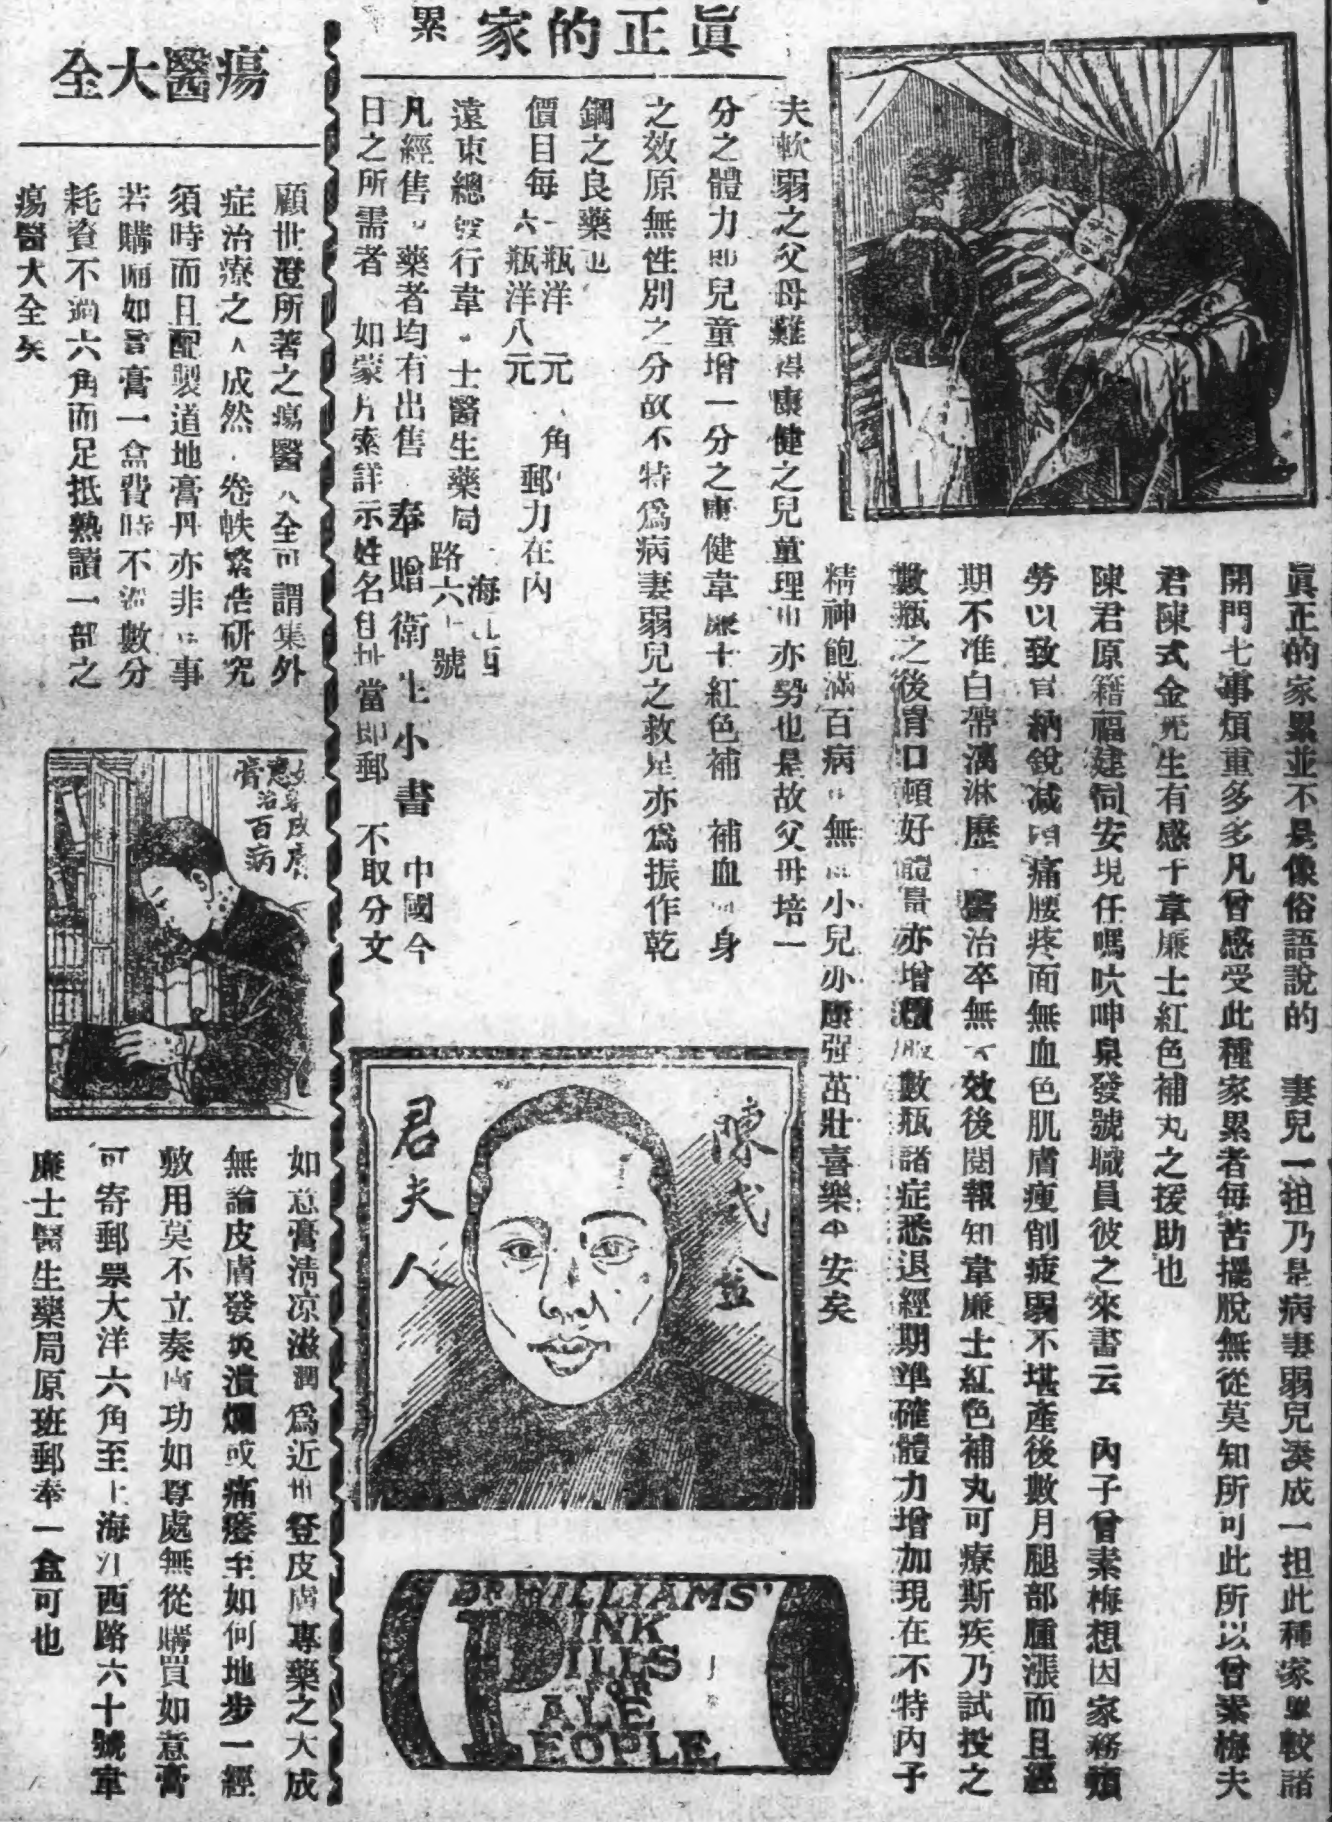 眞正的家累
眞正的家累並不是像俗語說的 妻兒一担乃是病妻弱兒湊成一担此種家累較諸
開門七事煩重多多凡曾感受此種家累者每苦擺脫無從莫知所可此所以曾素梅夫
君陳式金先生有感于韋廉士紅色補丸之援助也
陳君原籍福建同安現任嗎吹呻泉發號職員彼之來書云 內子曾素梅想因家務煩
勞以致胃納銳减 痛腰疼面無血色肌膚瘦削疲弱不堪產後數月腿部腫漲而且經
期不准白帶漓淋歷 醫治卒無 效後閱報知韋廉士紅色補丸可療斯疾乃試投之
數瓶之後胃口頓好體量亦增續服數瓶諸症悉退經期準確體力增加現在不特內子
精神飽滿百病 無 小兒亦康强茁壯喜樂平安矣
夫軟弱之父母難得康健之兒童理 亦勢也是故父母培一
分之體力即兒童增一分之康健韋廉士紅色補 補血 身
之效原無性別之分故不特爲病妻弱兒之救星亦爲振作乾
鋼之良藥也
價目每一瓶洋 元 角
六瓶洋八元
郵力在內
遠東總發行韋 士醫生藥局
海江西
路六十號
凡經售 藥者均有出售 奉贈衛生小書 中國今
日之所需者 如蒙片索詳示姓名住址當即郵 不取分文
陳式金
君夫人
DR WILLIAMS'
PINK
PILLS
FOR
PALE
PEOPLE
瘍醫大全
顧世澄所著之瘍醫大全可謂集外
症治療之大成然 卷帙繁浩研究
須時而且配製道地膏丹亦非 事
若購 如意膏一盒費時不過數分
耗資不過六角而足抵熟讀一部之
瘍醫大全矣
如意膏
治百病
如意膏淸凉滋潤爲近世登皮膚專藥之大成
無論皮膚發炎潰爛或痛癢至如何地步一經
敷用莫不立奏 功如尊處無從購買如意膏
可寄郵票大洋六角至上海江西路六十號韋
廉士醫生藥局原班郵奉一盒可也